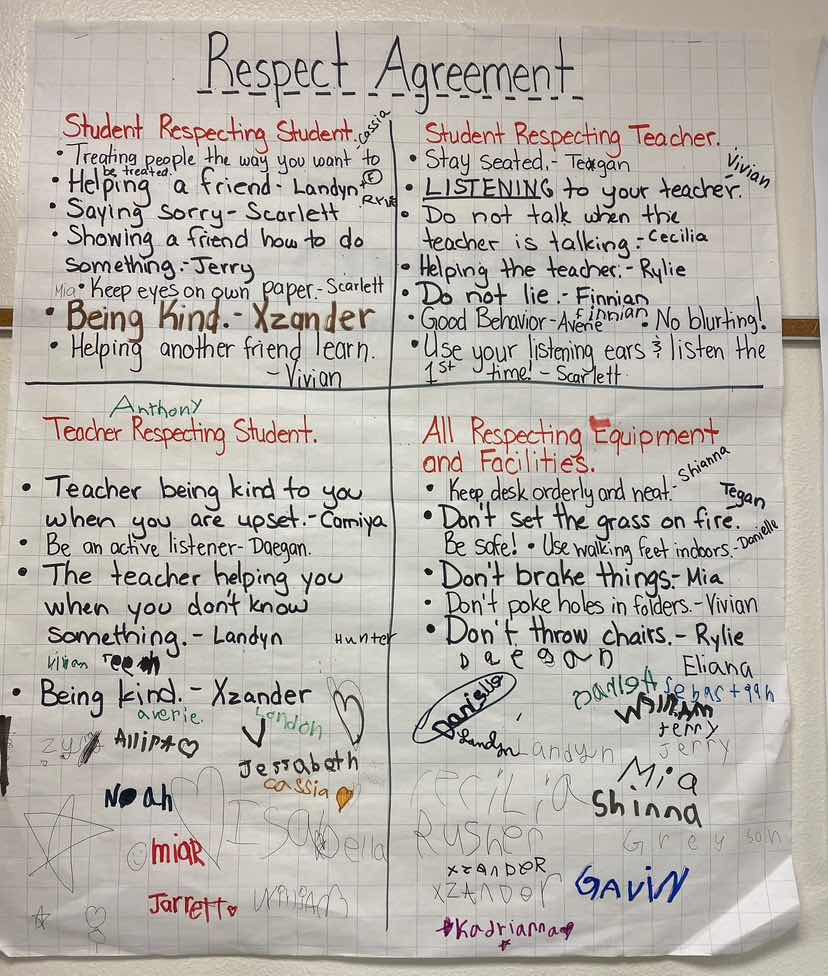 Respect Agreement
Student Respecting Student.
Cassia
• Treating people the way you want to
be treated.
• Helping a friend - Landyn
• Saying sorry - Scarlett
• Showing a friend how to do
something. - Jerry
Mia • Keep eyes on own paper. - Scarlett
• Being Kind. - Xzander
• Helping another friend learn.
- Vivian
Student Respecting Teacher.
• Stay seated. - Teagan
Vivian
• LISTENING to your teacher.
• Do not talk when the
teacher is talking. - Cecilia
• Helping the teacher. - Rylie
• Do not lie. - Finnian
• Good Behavior - Averie Finnian • No blurting!
• Use your listening ears & listen the
1st time! - Scarlett
Anthony
Teacher Respecting Student.
• Teacher being kind to you
when you are upset. - Camiya
• Be an active listener - Daegan.
• The teacher helping you
when you don't know
something. - Landyn
Hunter
Vivian
• Being kind. - Xzander
averie.
London
Jessabeth
cassia
Noah
Isabella
miaR
Jarrett
William
All Respecting Equipment
and Facilities.
Shianna
• Keep desk orderly and neat. -
Tegan
• Don't set the grass on fire.
Be safe! • Use walking feet indoors. - Danielle
• Don't brake things. - Mia
• Don't poke holes in folders. - Vivian
• Don't throw chairs. - Rylie
Daegan
Eliana
Danielle
William
Jerry
Landyn
Landyn
Jerry
Mia
Cecilia
Shinna
Rusher
Greyson
XZANDER
XZANDER
GAViN
Kadrianna